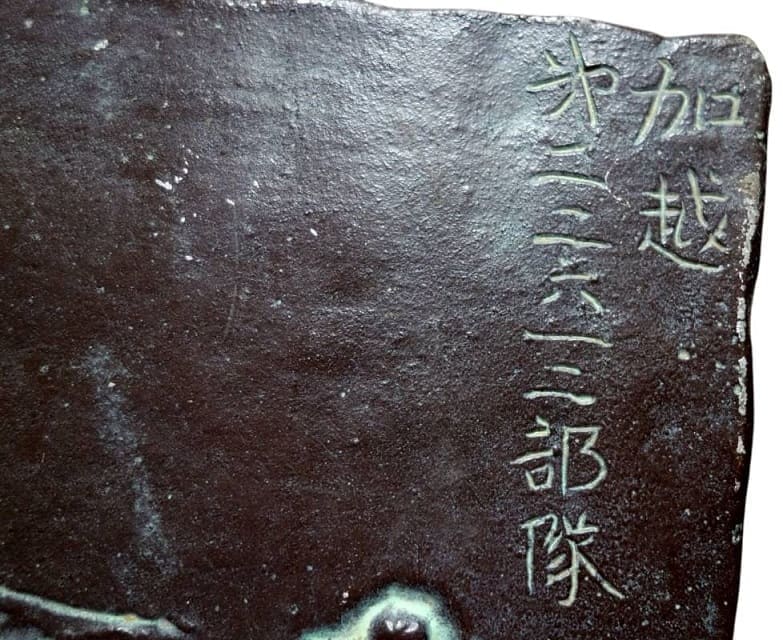 加越
第二二六一二部隊